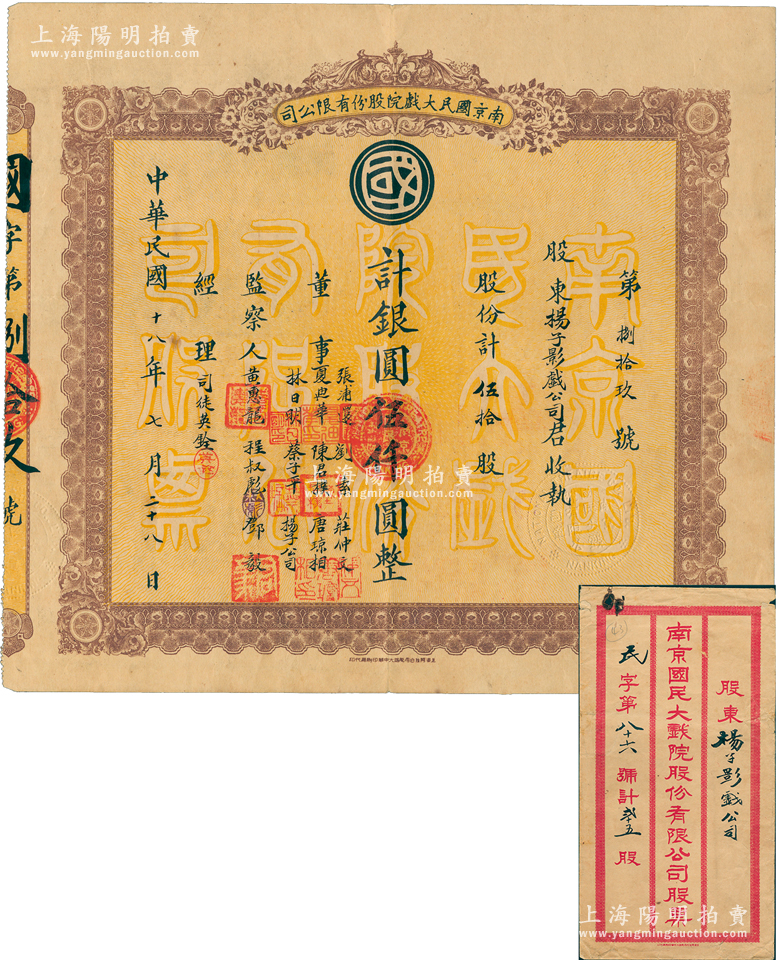 上海陽明拍賣
www.yangmingauction.com
司公限有份股院戲大民國京南
國
第捌拾玖號
股東揚子影戲公司君收執
股份計伍拾股
計銀圓伍仟圓整
董事
張浦
劉
莊仲文
夏典華
陳君
唐琼相
林日
蔡子平
揚子公司
監察人
黃惠龍
程叔彪
鄧毅
經理
司徒英銓
中華民國十八年七月二十八日
國字第捌拾玖號
南京國民大戲院股份有限公司股票
股東楊子影戲公司
南京國民大戲院股份有限公司股票
民字第八十六號計五股
上海陽明拍賣
www.yangmingauction.com